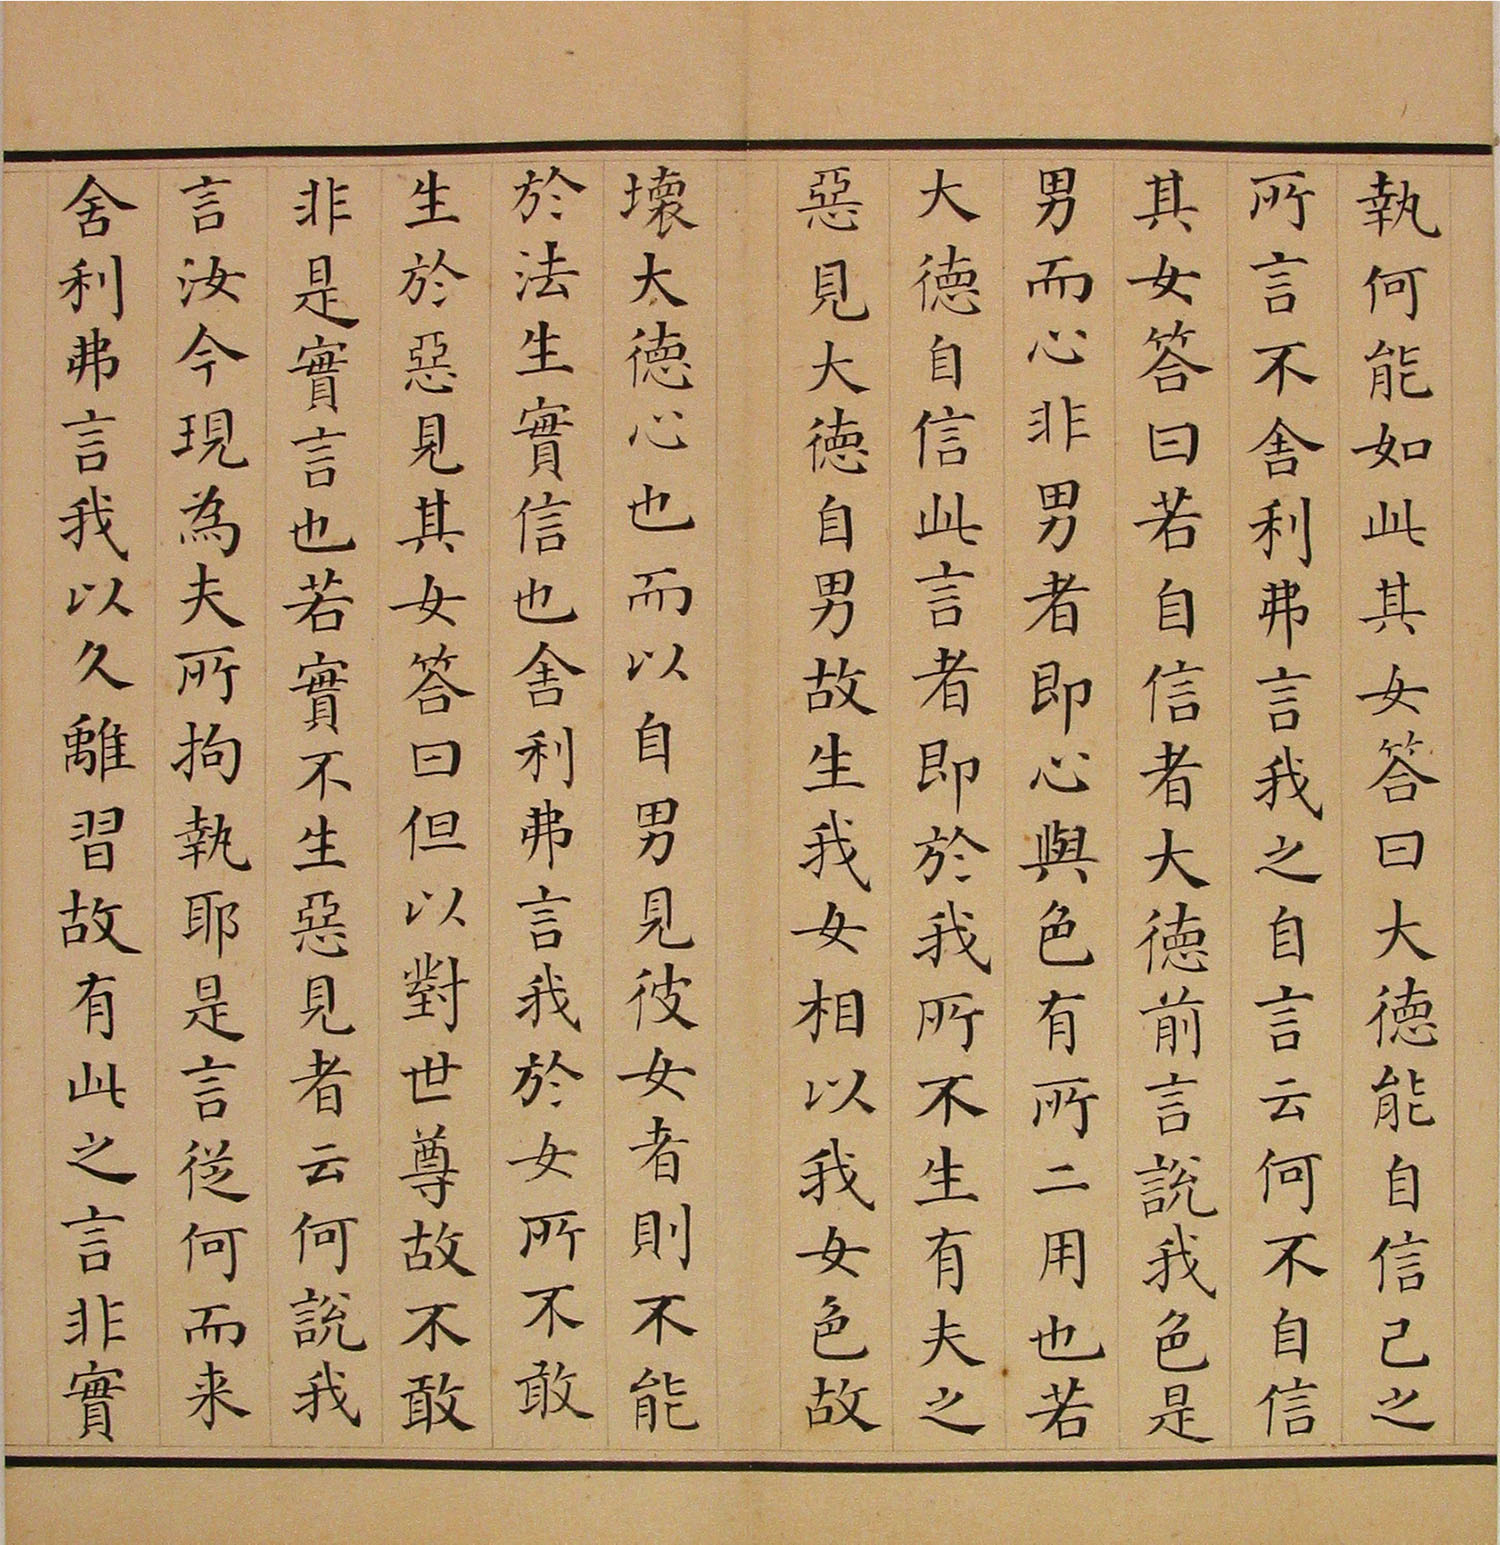 執何能如此其女答曰大德能自信己之
所言不舍利弗言我之自言云何不自信
其女答曰若自信者大德前言說我色是
男而心非男者即心與色有所二用也若
大德自信此言者即於我所不生有夫之
惡見大德自男故生我女相以我女色故
壞大德心也而以自男見彼女者則不能
於法生實信也舍利弗言我於女所不敢
生於惡見其女答曰但以對世尊故不敢
非是實言也若實不生惡見者云何說我
言汝今現為夫所拘執耶是言從何而来
舍利弗言我以久離習故有此之言非實